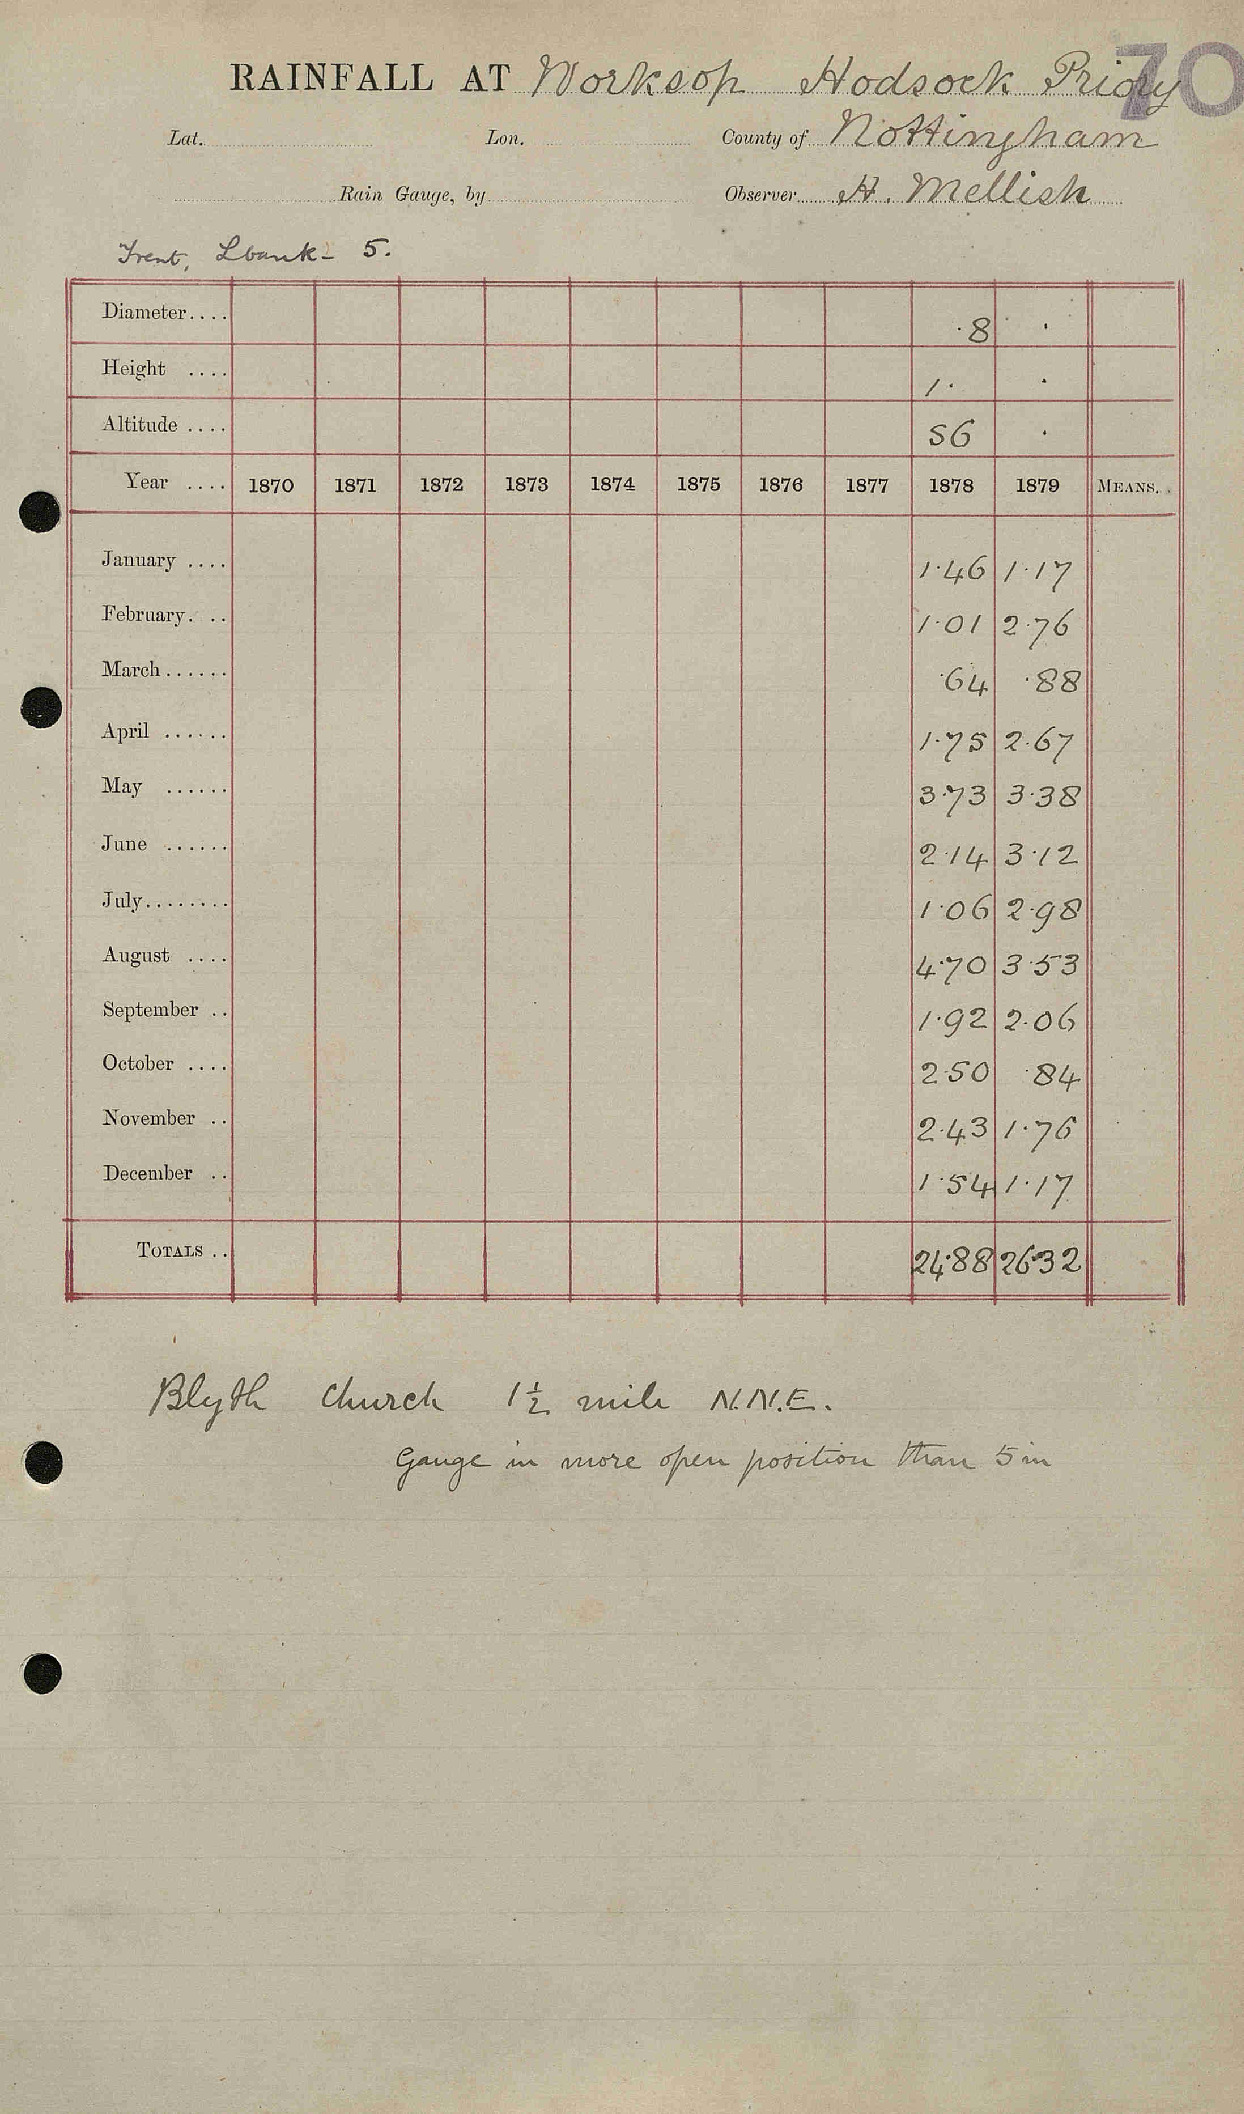 70
RAINFALL AT Worksop Hodsock Priory
Lat. Lon. County of Nottingham
Rain Gauge, by Observer H. Mellish
Trent, L bank - 5.
Diameter.... ·8 ·
Height .... 1· ·
Altitude .... 56 ·
Year .... 1870 1871 1872 1873 1874 1875 1876 1877 1878 1879 MEANS..
January .... 1·46 1·17
February. .. 1·01 2·76
March...... ·64 ·88
April ...... 1·75 2·67
May ...... 3·73 3·38
June ...... 2·14 3·12
July........ 1·06 2·98
August .... 4·70 3·53
September .. 1·92 2·06
October .... 2·50 ·84
November .. 2·43 1·76
December .. 1·54 1·17
TOTALS .. 24·88 26·32
Blyth church 1½ mile N.N.E.
Gauge in more open position than 5 in